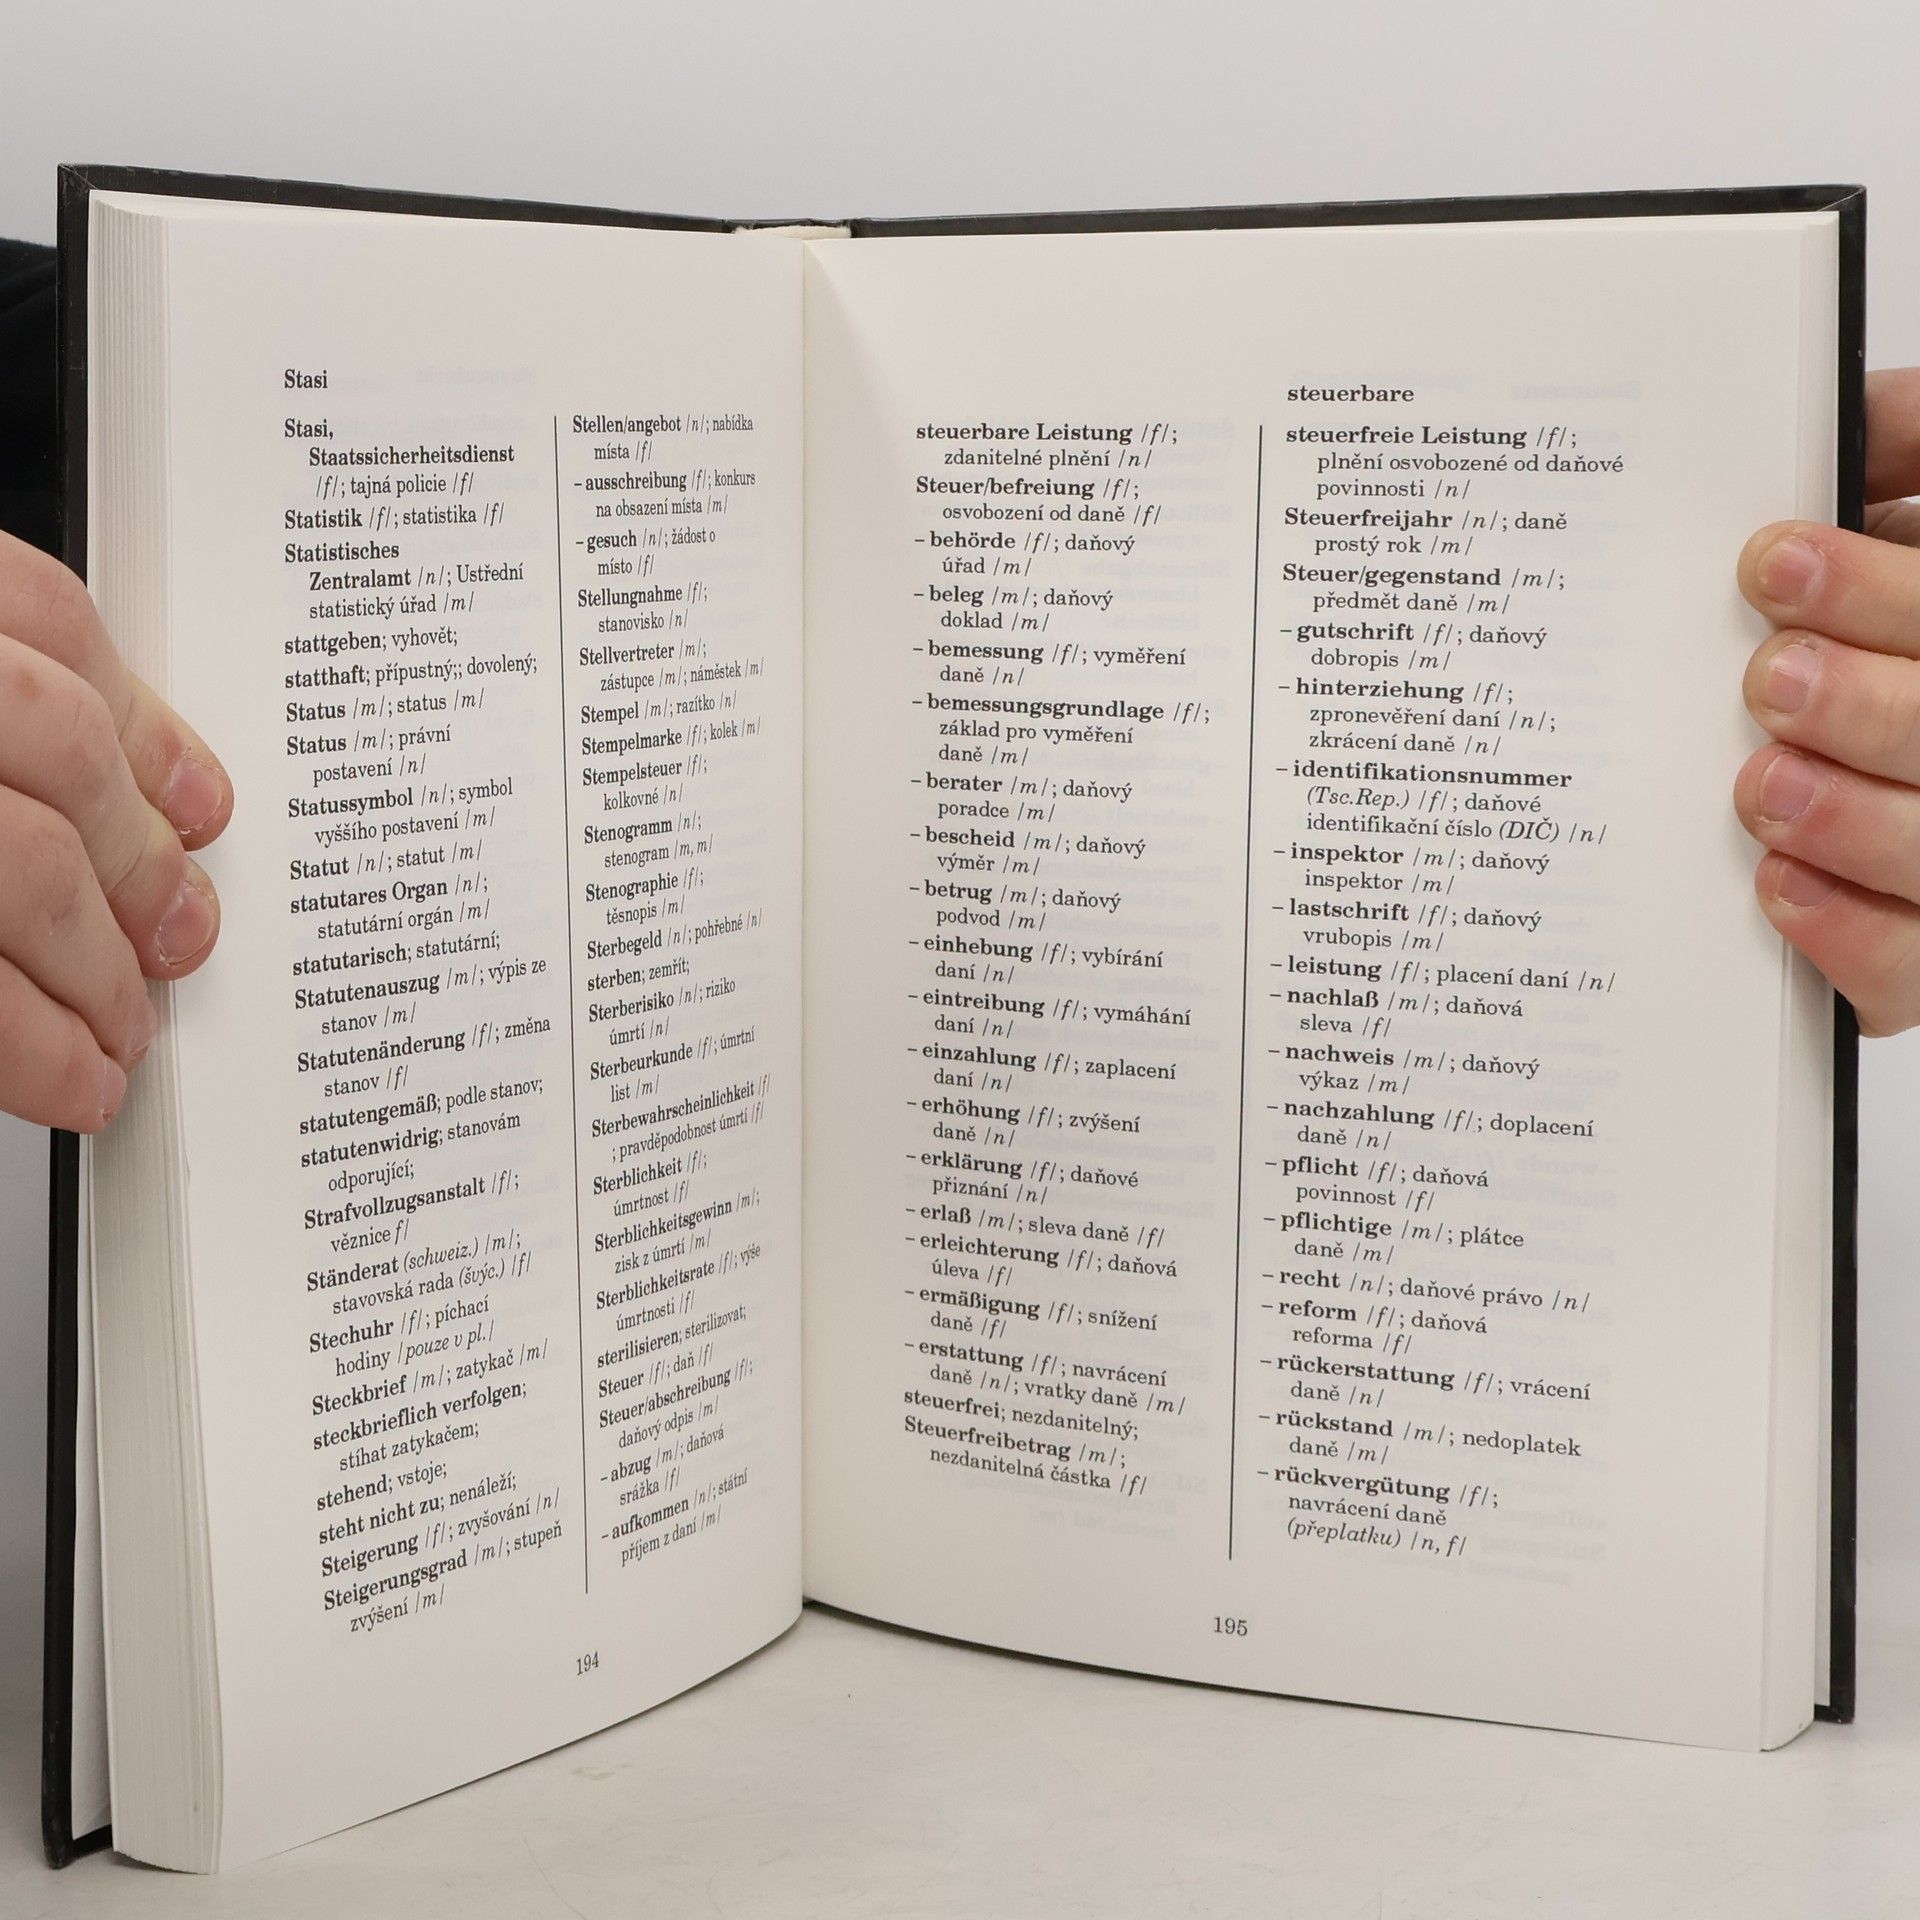 Stasi
Stasi,
Staatssicherheitsdienst
/f/; tajná policie /f/
Statistik /f/; statistika /f/
Statistisches
Zentralamt /n/; Ustřední
statistický úřad /m/
stattgeben; vyhovět;
statthaft; přípustný;; dovolený;
Status /m/; status /m/
Status /m/; právní
postavení /n/
Statussymbol /n/; symbol
vyššího postavení /m/
Statut /n/; statut /m/
statutares Organ /n/;
statutární orgán /m/
statutarisch; statutární;
Statutenauszug /m/; výpis ze
stanov /m/
Statutenänderung /f/; změna
stanov /f/
statutengemäß; podle stanov;
statutenwidrig; stanovám
odporující;
Strafvollzugsanstalt /f/;
věznice f/
Ständerat (schweiz.) /m/;
stavovská rada (švýc.) /f/
Stechuhr /f/; píchací
hodiny /pouze v pl./
Steckbrief /m/; zatykač /m/
steckbrieflich verfolgen;
stíhat zatykačem;
stehend; vstoje;
steht nicht zu; nenáleží;
Steigerung /f/; zvyšování /n/
Steigerungsgrad /m/; stupeň
zvýšení /m/
Stellen/angebot /n/; nabídka
místa /f/
– ausschreibung /f/; konkurs
na obsazení místa /m/
– gesuch /n/; žádost o
místo /f/
Stellungnahme /f/;
stanovisko /n/
Stellvertreter /m/;
zástupce /m/; náměstek /m/
Stempel /m/; razítko /n/
Stempelmarke /f/; kolek /m/
Stempelsteuer /f/;
kolkovné /n/
Stenogramm /n/;
stenogram /m, m/
Stenographie /f/;
těsnopis /m/
Sterbegeld /n/; pohřebné /n/
sterben; zemřít;
Sterberisiko /n/; riziko
úmrtí /n/
Sterbeurkunde /f/; úmrtní
list /m/
Sterbewahrscheinlichkeit /f/
; pravděpodobnost úmrtí /f/
Sterblichkeit /f/;
úmrtnost /f/
Sterblichkeitsgewinn /m/;
zisk z úmrtí /m/
Sterblichkeitsrate /f/; výše
úmrtnosti /f/
sterilisieren; sterilizovat;
Steuer /f/; daň /f/
Steuer/abschreibung /f/;
daňový odpis /m/
– abzug /m/; daňová
srážka /f/
– aufkommen /n/; státní
příjem z daní /m/
194
steuerbare
steuerbare Leistung /f/;
zdanitelné plnění /n/
Steuer/befreiung /f/;
osvobození od daně /f/
– behörde /f/; daňový
úřad /m/
– beleg /m/; daňový
doklad /m/
– bemessung /f/; vyměření
daně /n/
– bemessungsgrundlage /f/;
základ pro vyměření
daně /m/
– berater /m/; daňový
poradce /m/
– bescheid /m/; daňový
výměr /m/
– betrug /m/; daňový
podvod /m/
– einhebung /f/; vybírání
daní /n/
– eintreibung /f/; vymáhání
daní /n/
– einzahlung /f/; zaplacení
daní /n/
– erhöhung /f/; zvýšení
daně /n/
– erklärung /f/; daňové
přiznání /n/
– erlaß /m/; sleva daně /f/
– erleichterung /f/; daňová
úleva /f/
– ermäßigung /f/; snížení
daně /f/
– erstattung /f/; navrácení
daně /n/; vratky daně /m/
steuerfrei; nezdanitelný;
Steuerfreibetrag /m/;
nezdanitelná částka /f/
steuerfreie Leistung /f/;
plnění osvobozené od daňové
povinnosti /n/
Steuerfreijahr /n/; daně
prostý rok /m/
Steuer/gegenstand /m/;
předmět daně /m/
– gutschrift /f/; daňový
dobropis /m/
– hinterziehung /f/;
zpronevěření daní /n/;
zkrácení daně /n/
– identifikationsnummer
(Tsc.Rep.) /f/; daňové
identifikační číslo (DIČ) /n/
– inspektor /m/; daňový
inspektor /m/
– lastschrift /f/; daňový
vrubopis /m/
– leistung /f/; placení daní /n/
– nachlaß /m/; daňová
sleva /f/
– nachweis /m/; daňový
výkaz /m/
– nachzahlung /f/; doplacení
daně /n/
– pflicht /f/; daňová
povinnost /f/
– pflichtige /m/; plátce
daně /m/
– recht /n/; daňové právo /n/
– reform /f/; daňová
reforma /f/
– rückerstattung /f/; vrácení
daně /n/
– rückstand /m/; nedoplatek
daně /m/
– rückvergütung /f/;
navrácení daně
(přeplatku) /n, f/
195